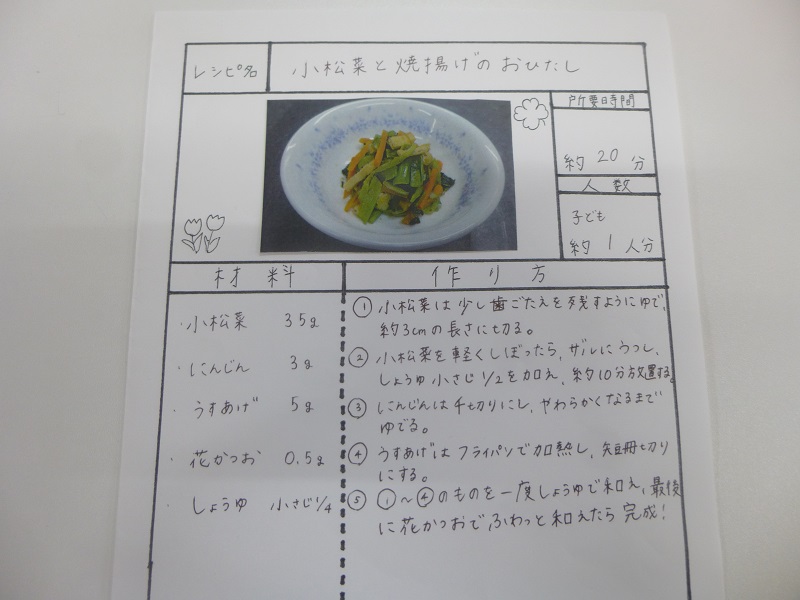 レシピ名 小松菜と焼揚げのおひたし
所要時間
約 20 分
人数
子ども
約 1 人分
材料 作り方
・小松菜 35g
・にんじん 3g
・うすあげ 5g
・花かつお 0.5g
・しょうゆ 小さじ1/4
① 小松菜は少し歯ごたえを残すようにゆで、
約3cmの長さに切る。
② 小松菜を軽くしぼったら、ザルにうつし、
しょうゆ小さじ1/2を加え、約10分放置する。
③ にんじんは千切りにし、やわらかくなるまで
ゆでる。
④ うすあげはフライパンで加熱し、短冊切り
にする。
⑤ ①～④のものを一度しょうゆで和え、最後
に花かつおでふわっと和えたら完成!